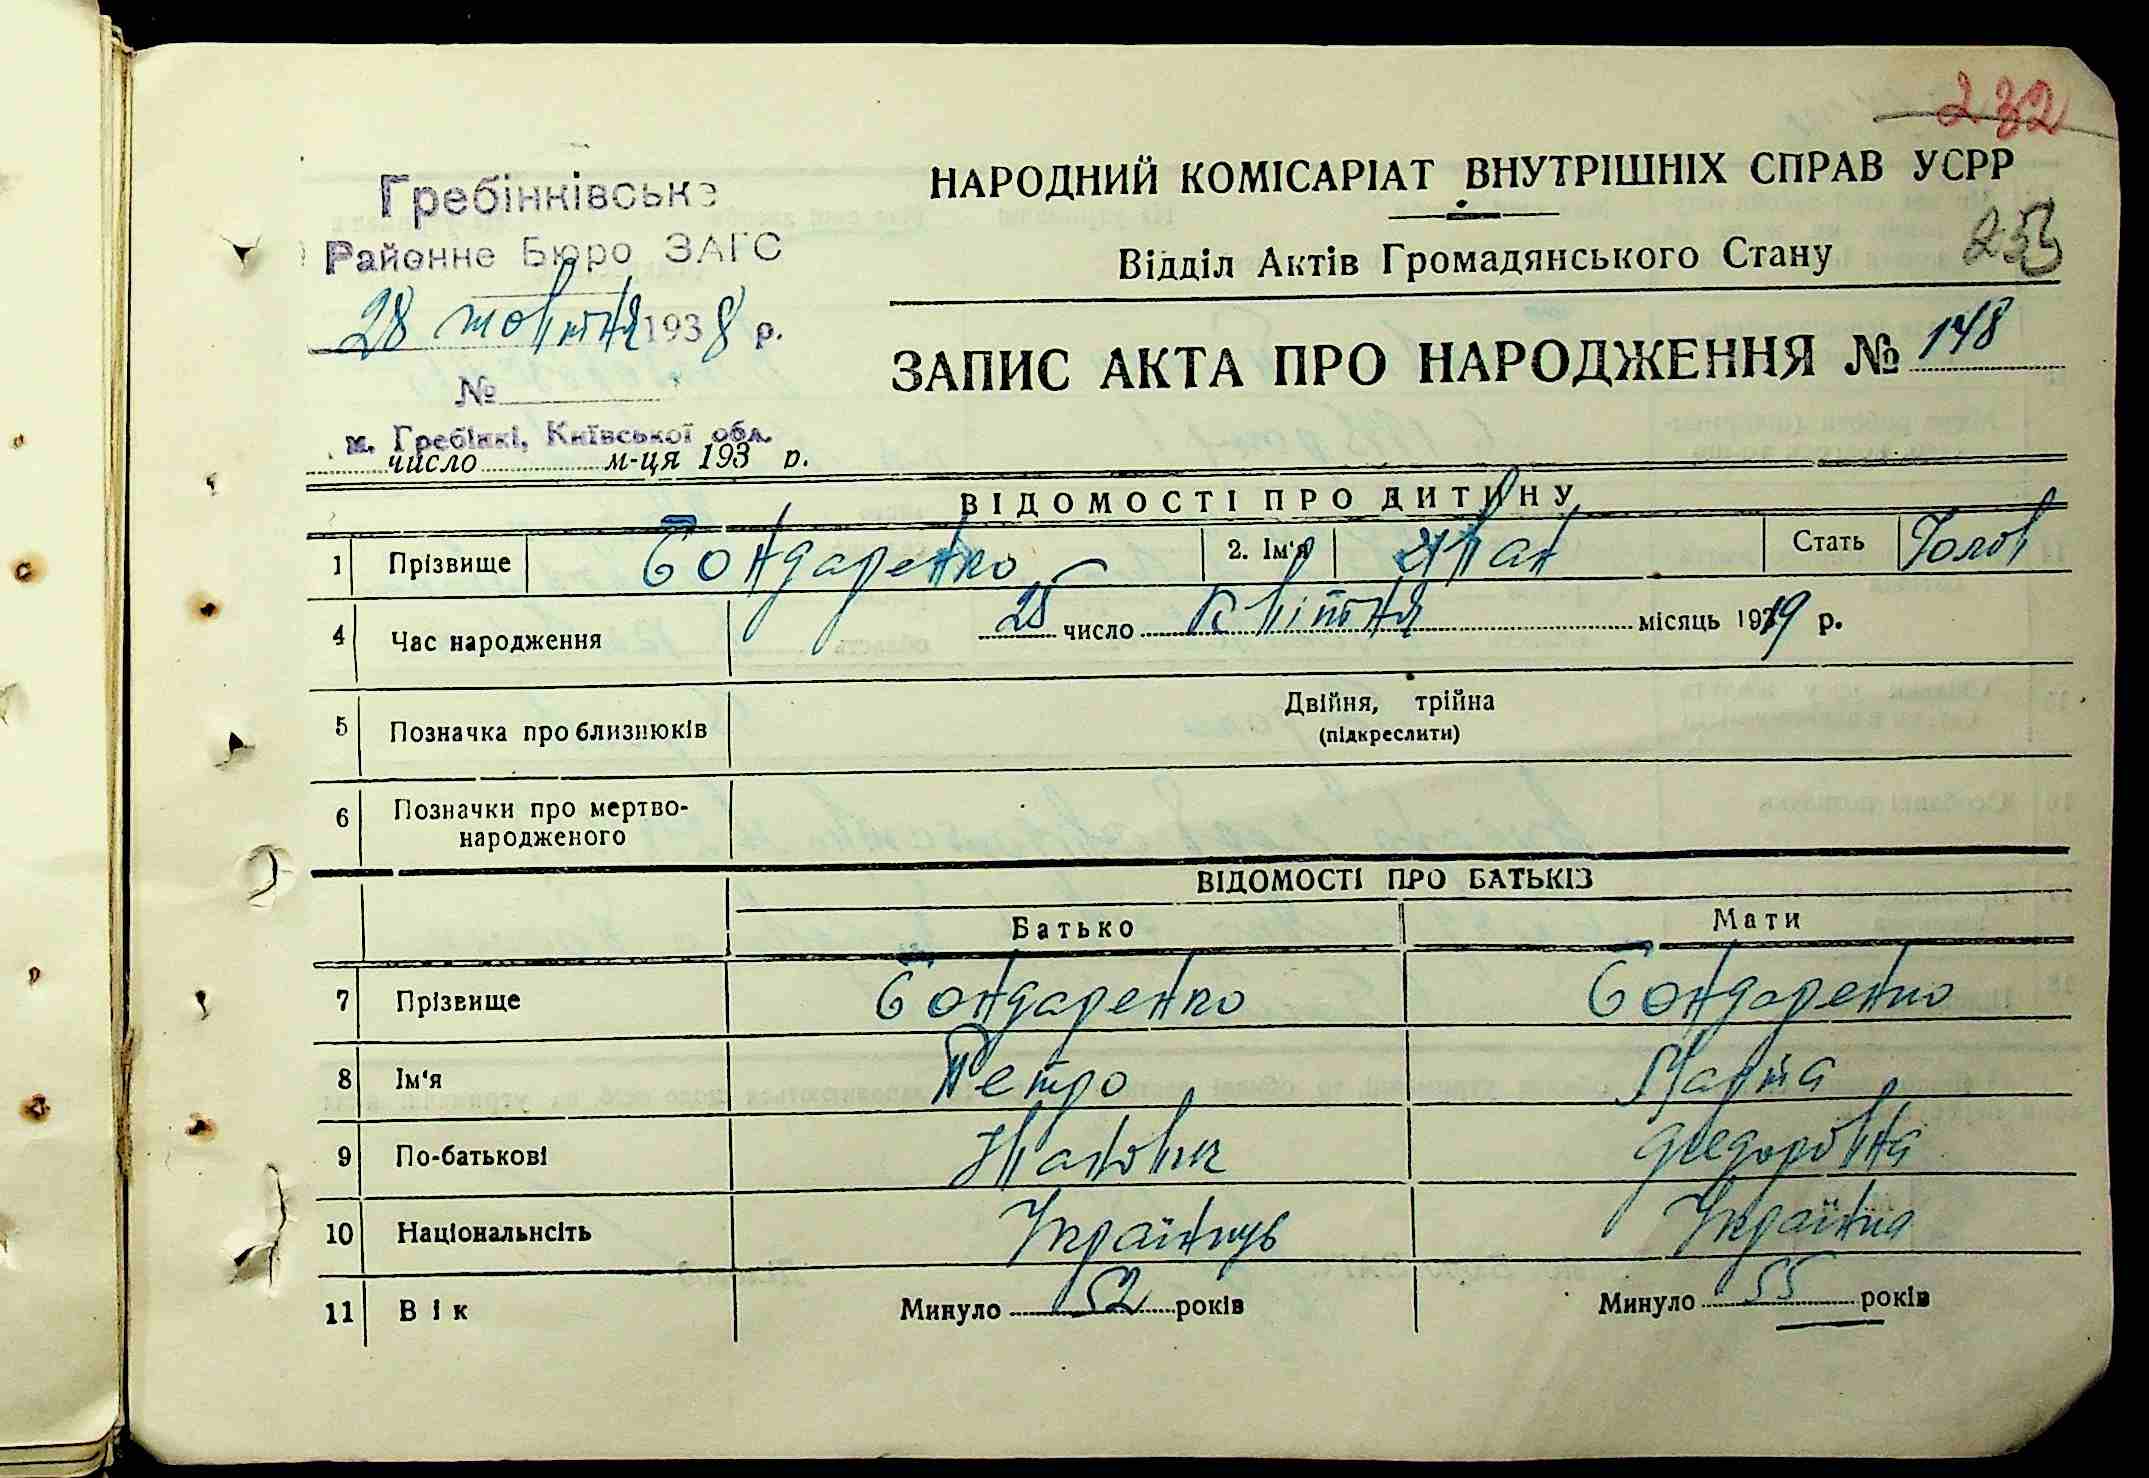 232
НАРОДНИЙ КОМІСАРІАТ ВНУТРІШНІХ СПРАВ УСРР
Гребінківське
Районне Бюро ЗАГС
Відділ Актів Громадянського Стану
28 жовтня 1938 р.
ЗАПИС АКТА ПРО НАРОДЖЕННЯ № 148
№
м. Гребінкі, Київської обл.
число м-ця 193 р.
ВІДОМОСТІ ПРО ДИТИНУ
1 Прізвище Бондаренко 2. Ім'я Іван Стать Чолов
4 Час народження 25 число Квітня місяць 1919 р.
5 Позначка про близнюків Двійня, трійна
(підкреслити)
6 Позначки про мертво-
народженого
ВІДОМОСТІ ПРО БАТЬКІВ
Батько Мати
7 Прізвище Бондаренко Бондаренко
8 Ім'я Петро Марта
9 По-батькові Федоровна
10 Національнсіть Українць Українка
11 Вік Минуло 52 років Минуло 55 років